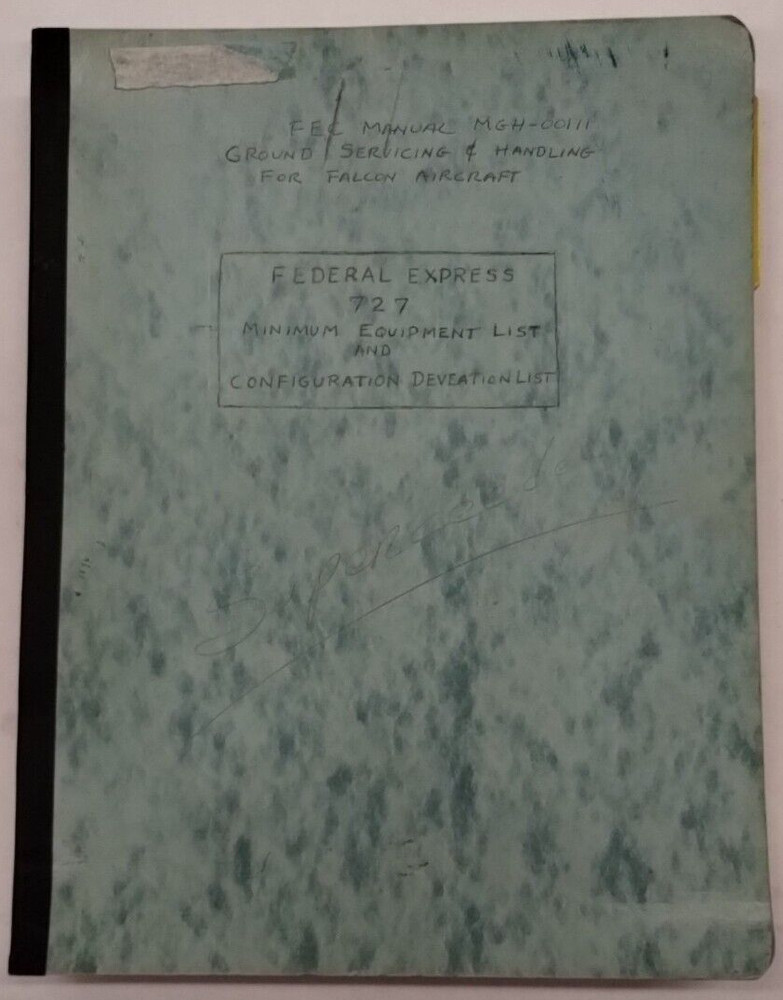 FEC MANUAL MGH-00111
GROUND SERVICING & HANDLING
FOR FALCON AIRCRAFT
FEDERAL EXPRESS
727
MINIMUM EQUIPMENT LIST
AND
CONFIGURATION DEVEATION LIST